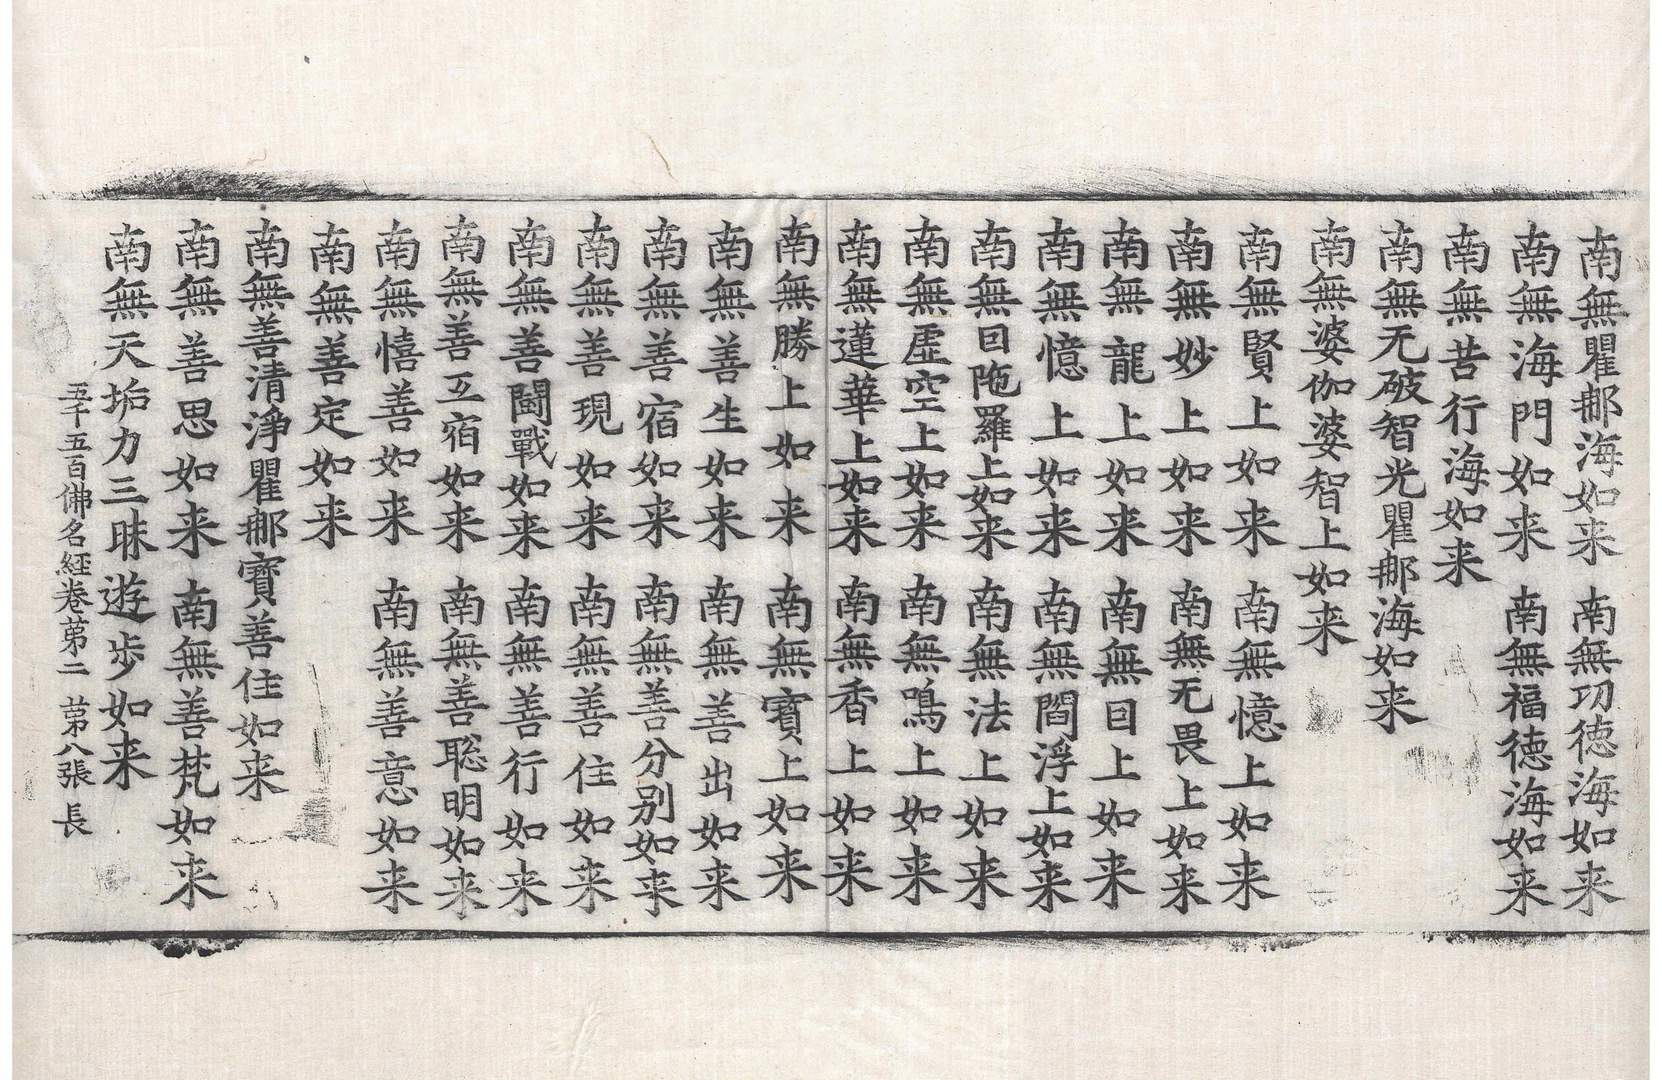 南無瞿䣯海如来　南無功徳海如来
南無海門如来　南無福徳海如来
南無苦行海如来
南無无破智光瞿䣯海如来
南無婆伽婆智上如来
南無賢上如来　南無憶上如来
南無妙上如来　南無无畏上如来
南無龍上如来　南無目上如来
南無憶上如来　南無閻浮上如来
南無因陁羅上如来　南無法上如来
南無虛空上如来　南無鳴上如来
南無蓮華上如来　南無香上如来
南無勝上如来　南無寶上如来
南無善生如来　南無善出如来
南無善宿如来　南無善分别如来
南無善現如来　南無善住如来
南無善鬪戰如来　南無善行如来
南無善互宿如来　南無善聡明如来
南無憘善如来　南無善意如来
南無善定如来
南無善清淨瞿䣯寶善住如来
南無善思如来　南無善梵如来
南無天垢力三昧遊步如来
五千五百佛名経卷苐二　苐八張　長